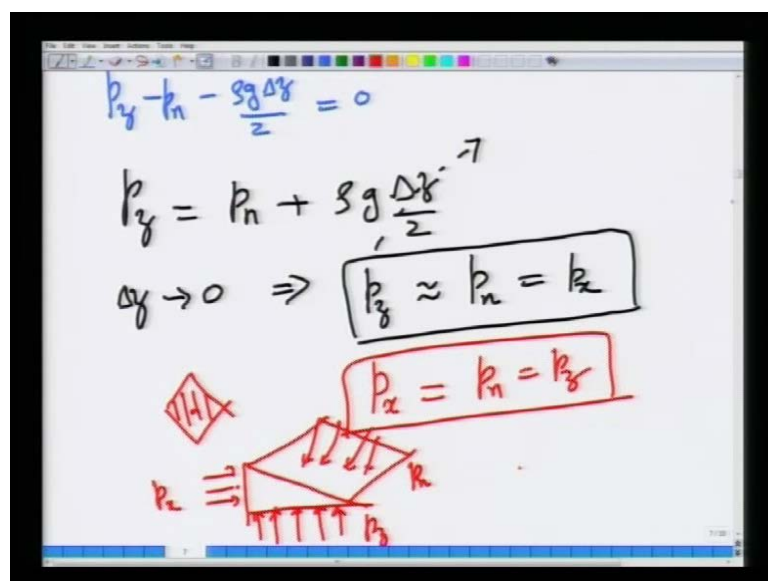 File Edit View Insert Actions Tools Help
p_z - p_n - ρgΔz/2 = 0
p_z = p_n + ρg Δz/2
Δz → 0 ⇒ p_z ≈ p_n = p_x
p_x = p_n = p_z
p_x
p_n
p_z
7